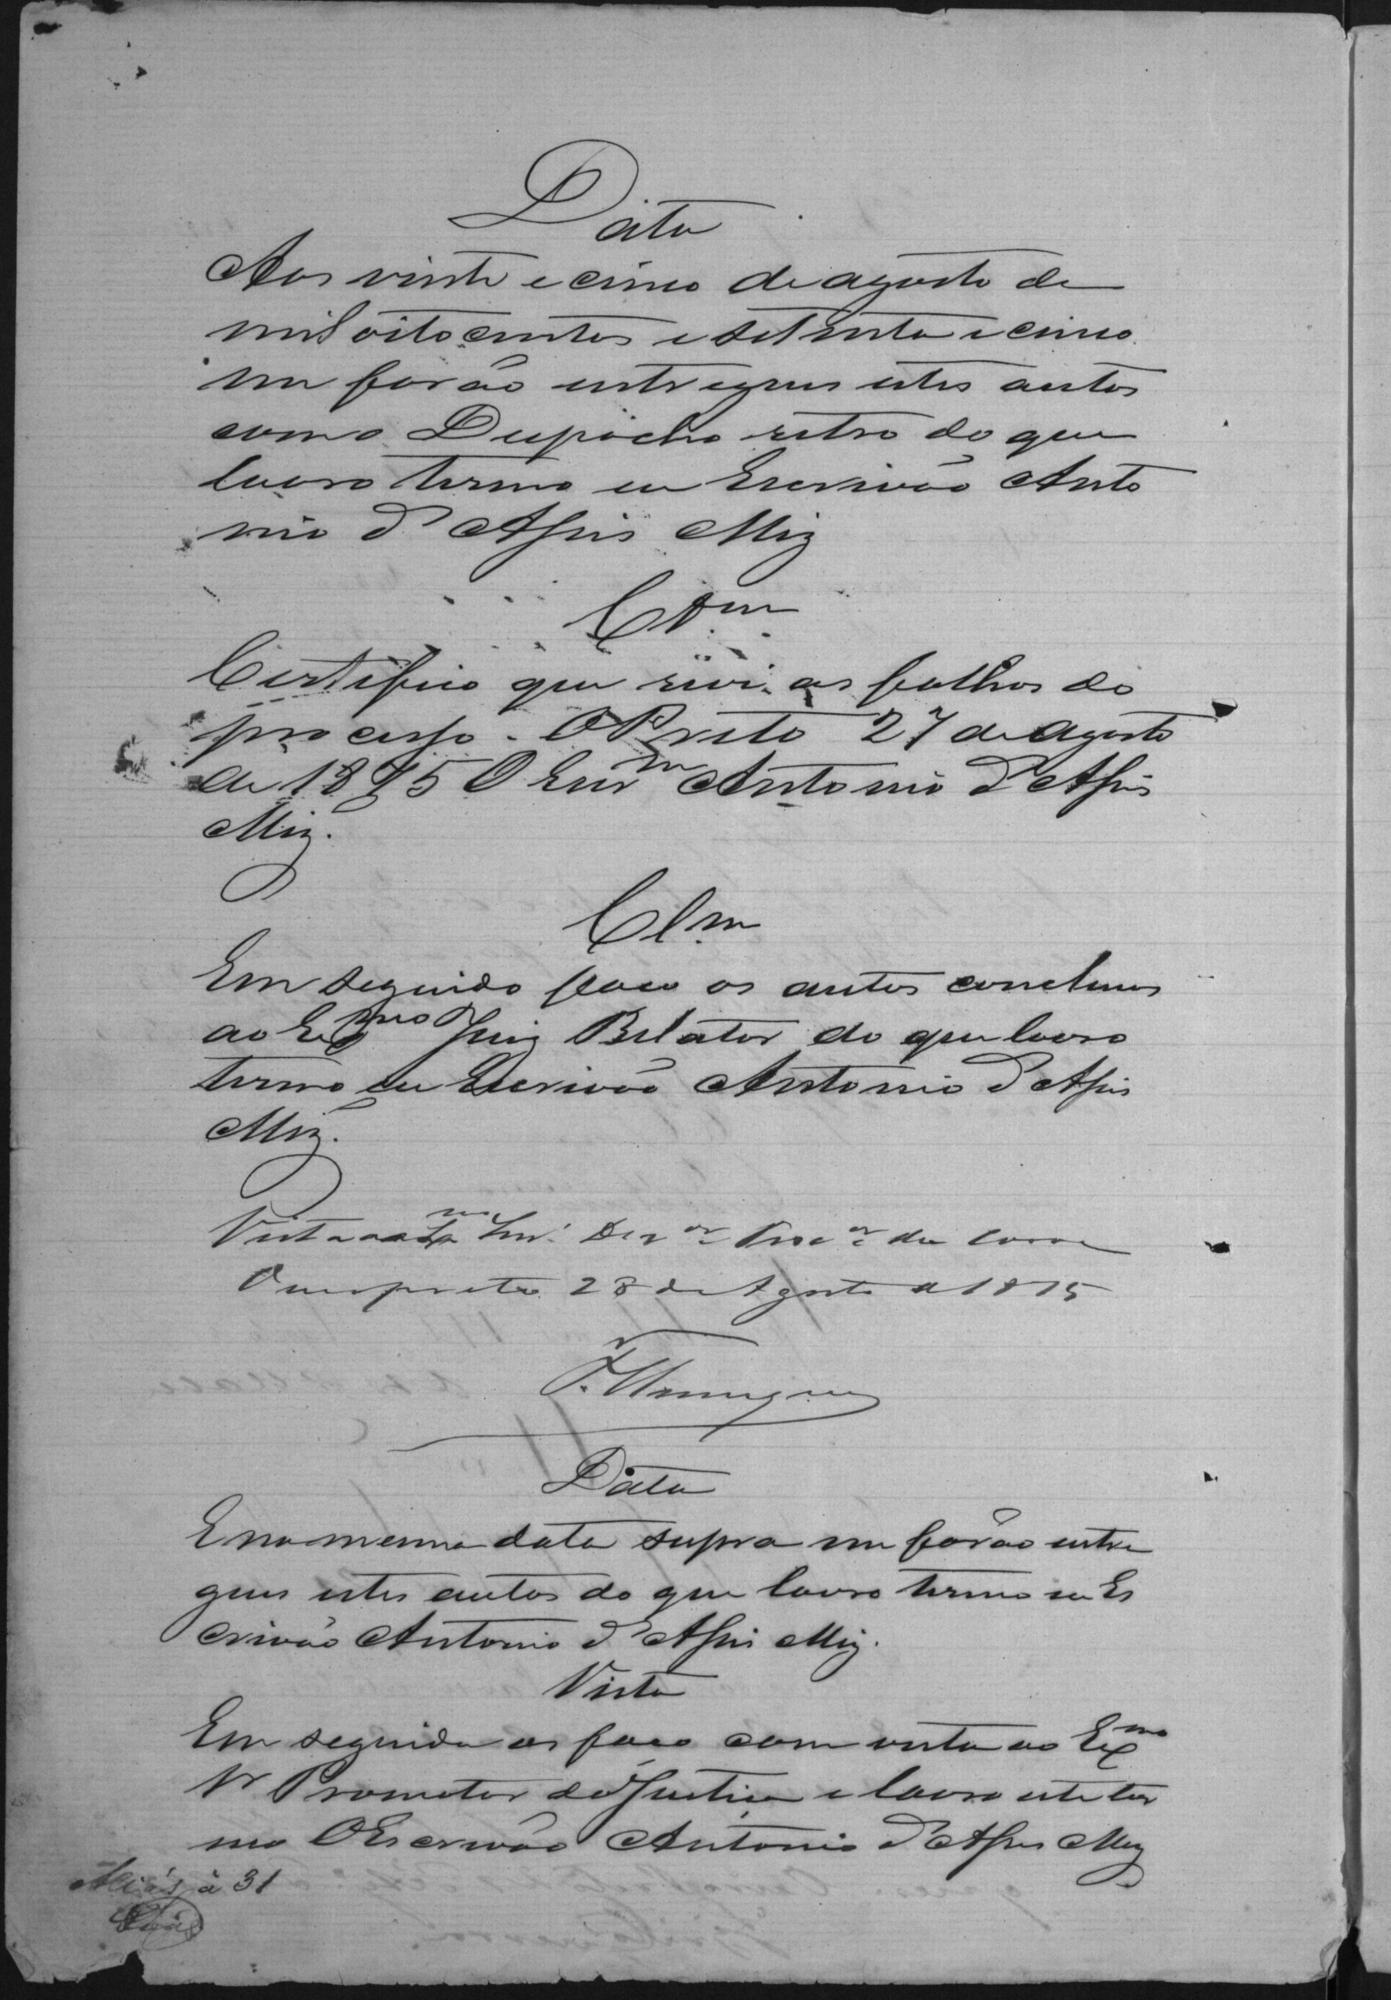 Data
Aos vinte e cinco de agosto de
mil oitocentos e setenta e cinco
me forão entregues estes autos
com o Despacho retro do que
lavro termo eu Escrivão Anto
nio d'Assis Miz
Ctam
Certifico que revi as folhas do
processo. O Preto 27 de agosto
de 1875 O Escrm Antonio d'Assis
Miz.
Clm
Em seguida faco os autos conclusos
ao Exmo Sr Juiz Relator do que lavro
termo eu Escrivão Antonio d'Assis
Miz.
Vista ao Exmo Snr. Dezor Procor da Coroa
Ouro preto 28 de Agosto de 1875
Data
E na mesma data supra me forão entre
gues estes autos do que lavro termo eu Es
crivão Antonio d'Assis Miz.
Vista
Em seguida os faco com vista ao Exmo
Sr Promotor da Justica e lavro este ter
mo O Escrivão Antonio d'Assis Miz
à 31